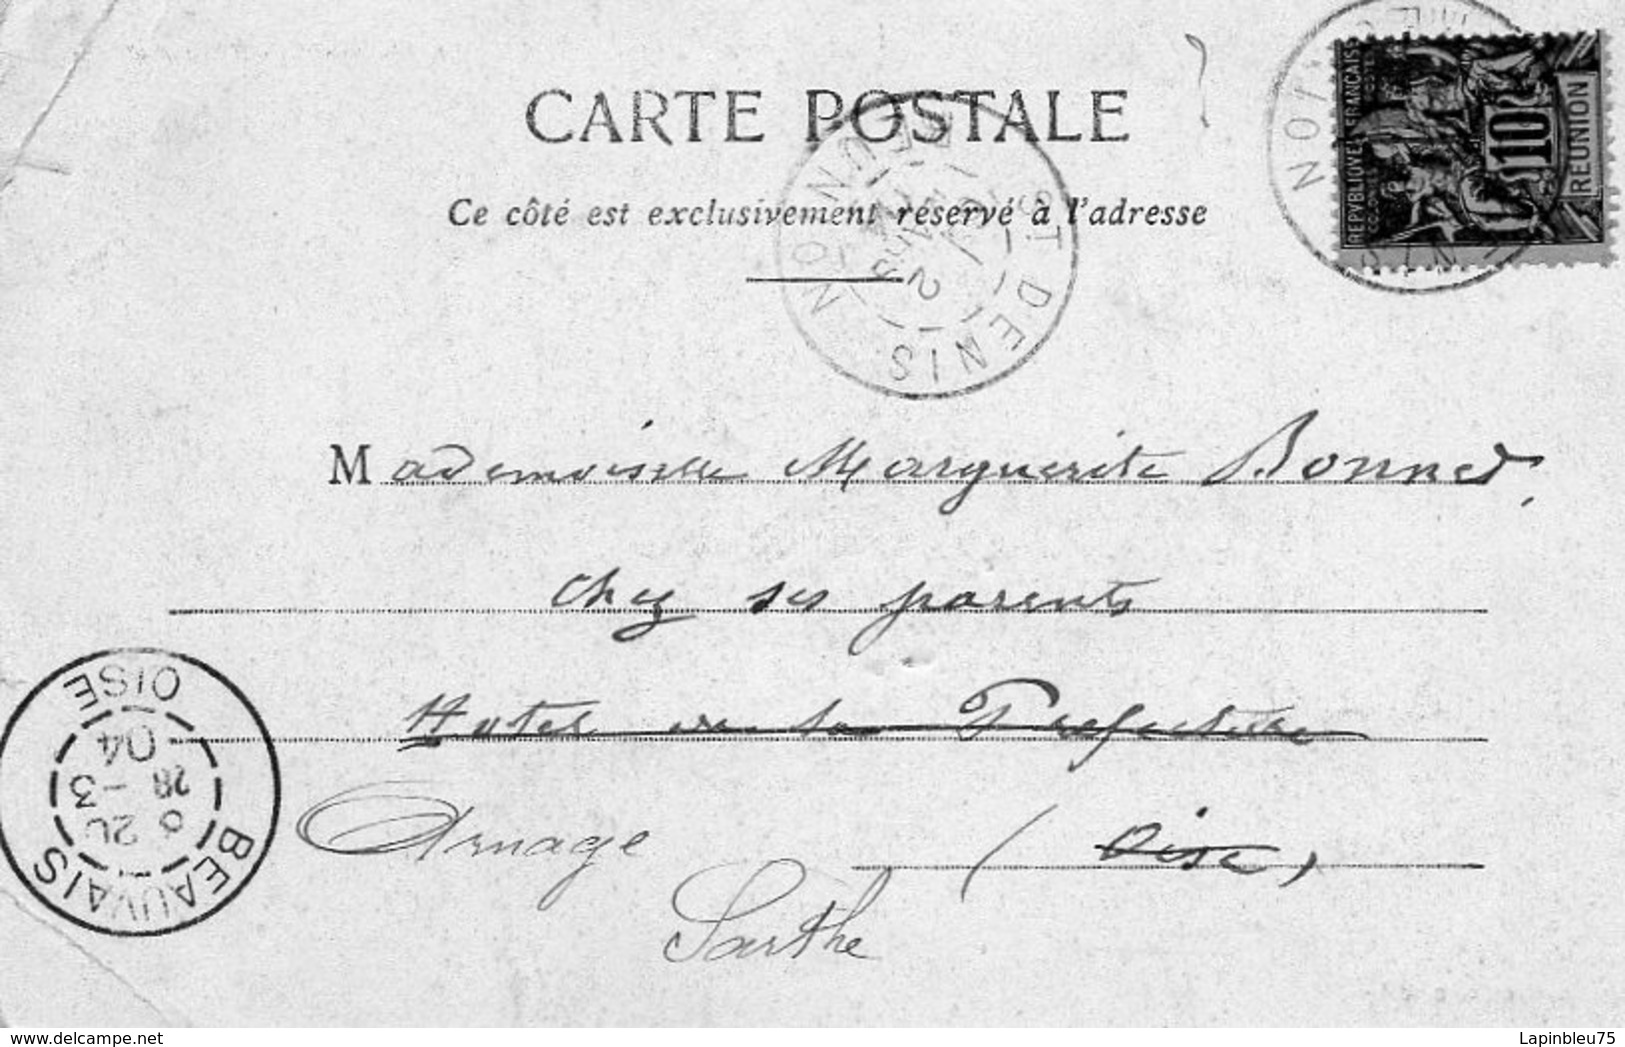 CARTE POSTALE
Ce côté est exclusivement réservé à l'adresse
REPVBLIQVE FRANÇAISE
10
REUNION
ST DENIS
RÉUNION
Mademoiselle Marguerite Bonnet,
Chez ses parents
Hotel de la Préfecture
(Oise)
Arnage
Sarthe
BEAUVAIS
6 20
28 - 3
04
OISE
Lapinbleu75